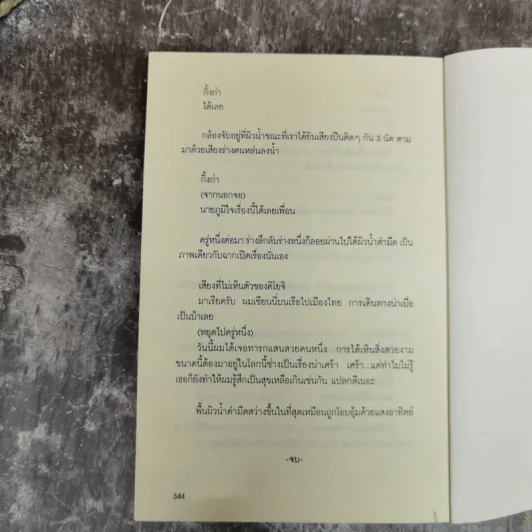 กิ้งก่า
ได้เลย
กล้องจับอยู่ที่ผิวน้ำขณะที่เราได้ยินเสียงปืนติดๆ กัน 3 นัด ตาม
มาด้วยเสียงร่างคนหล่นลงน้ำ
กิ้งก่า
(จากนอกจอ)
นายภูมิใจเรื่องนี้ได้เลยเพื่อน
ครู่หนึ่งต่อมา ร่างลึกลับร่างหนึ่งก็ลอยผ่านไปใต้ผิวน้ำดำมืด เป็น
ภาพเดียวกับฉากเปิดเรื่องนั่นเอง
เสียงที่ไม่เห็นตัวของคิโยจิ
มาเรียครับ ผมเขียนนี่บนเรือไปเมืองไทย การเดินทางน่าเบื่อ
เป็นบ้าเลย
(หยุดไปครู่หนึ่ง)
วันนี้ผมได้เจอทารกแสนสวยคนหนึ่ง การได้เห็นสิ่งสวยงาม
ขนาดนี้ต้องมาอยู่ในโลกนี้ช่างเป็นเรื่องน่าเศร้า เศร้า...แต่ทำไมไม่รู้
เธอก็ยังทำให้ผมรู้สึกเป็นสุขเหลือเกินเช่นกัน แปลกดีเนอะ
พื้นผิวน้ำดำมืดสว่างขึ้นในที่สุดเหมือนถูกโอบอุ้มด้วยแสงอาทิตย์
-จบ-
344